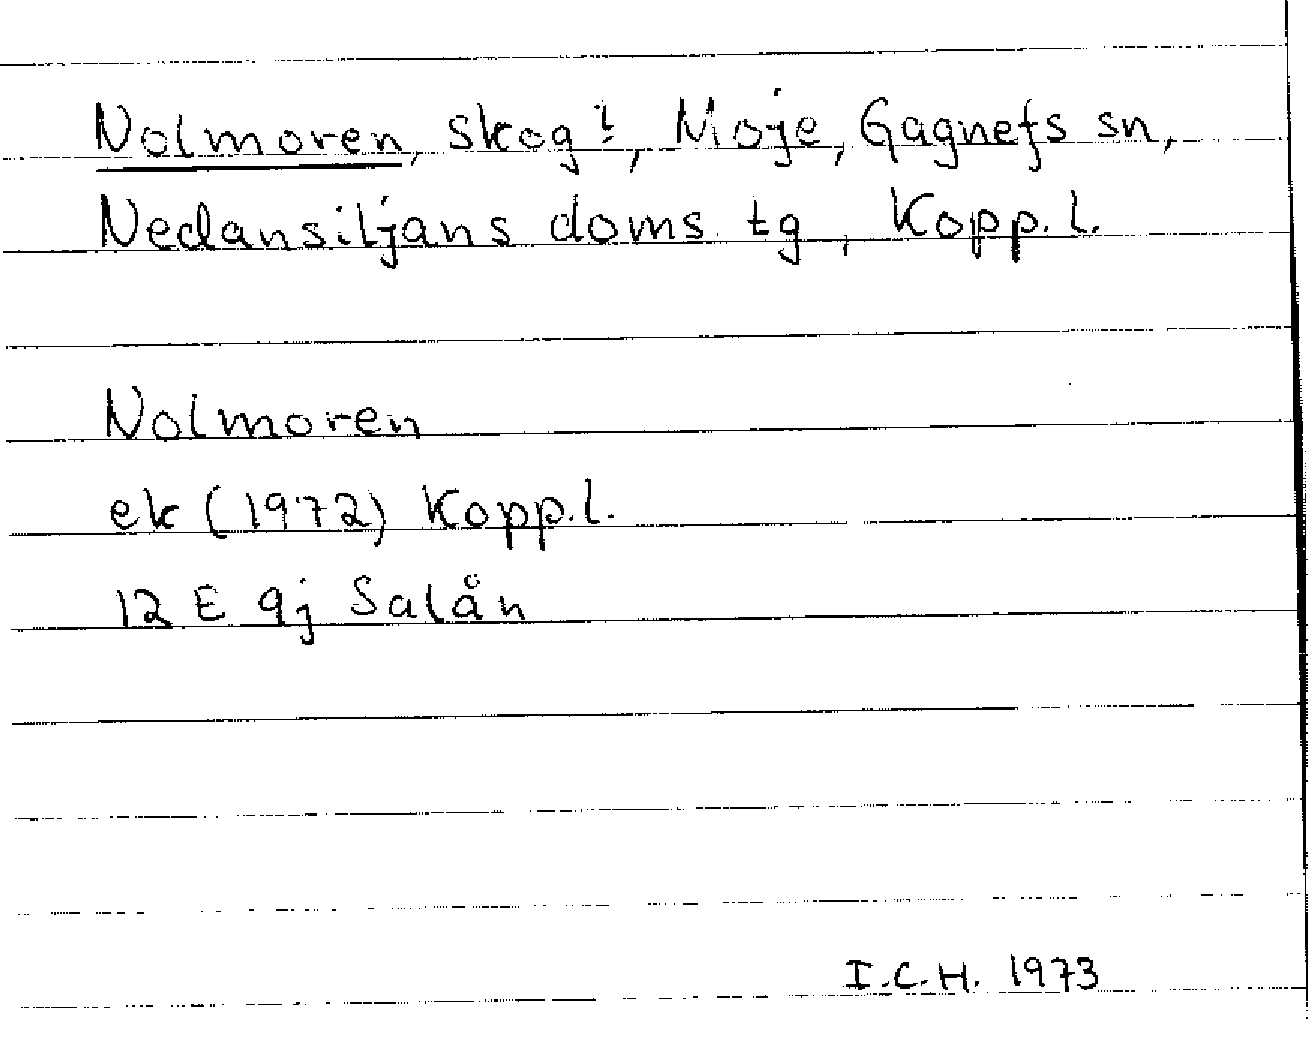 Nolmoren, skog?, Moje, Gagnefs sn,
Nedansiljans doms. tg, Kopp.l.
Nolmoren
ek (1972) Kopp.l.
12 E 9j Salån
I.C.H. 1973